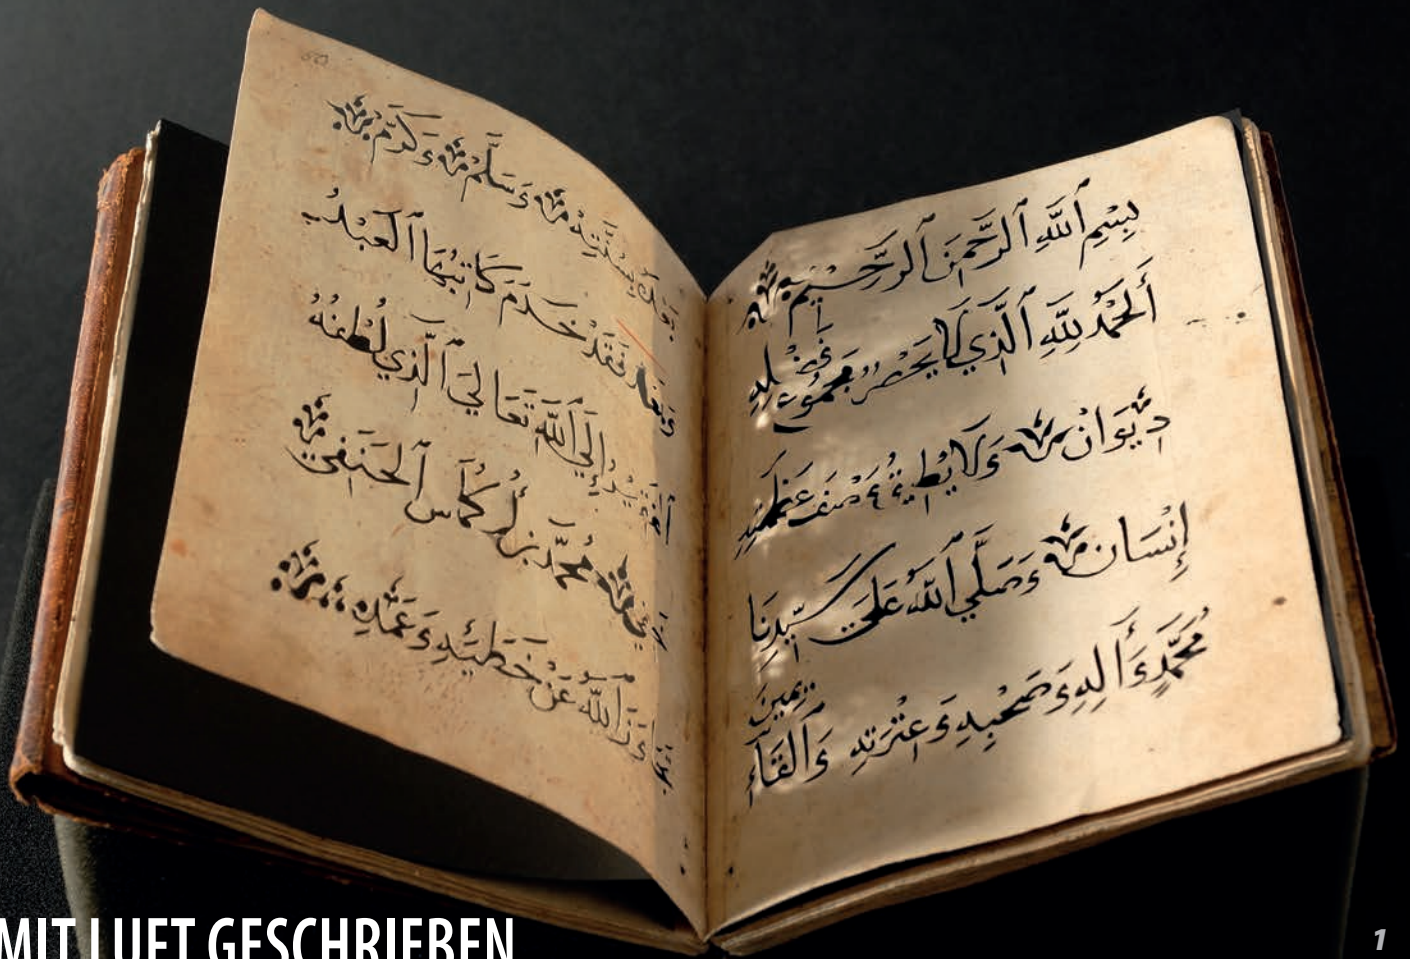 بِسْمِ ٱللَّهِ ٱلرَّحْمَنِ ٱلرَّحِيمِ
أَلْحَمْدُ لِلَّهِ ٱلَّذِي لَا يَحْصُرُ مَجْمُوعُ فَضْلِهِ
دِيْوَانْ وَلَا يُطِيقُ وَصْفَ عَظَمَتِهِ
إِنْسَان وَصَلَّي ٱللَّهُ عَلَي سَيِّدِنَا
مُحَمَّدٍ وَأَلِهِ وَصَحْبِهِ وَعِتْرَتِهِ وَٱلْقَائِمِينَ
بَعْدَهُ بِسُنَّتِهِ وَسَلَّمَ وَكَرَّمَ
وَبَعْدُ فَقَدْ خَدَمَ كَاتِبُهَا ٱلْعَبْدُ
ٱلْفَقِيرُ إِلَي ٱللَّهِ تَعَالَي ٱلَّذِي لُطْفُهُ
خَفِي مُحَمَّد بن أُزْكُمَاس ٱلْحَنَفِي
تَجَاوَزَ ٱللَّهُ عَنْ خَطَئِهِ وَعَمْدِهِ
MIT LUFT GESCHRIEBEN
1